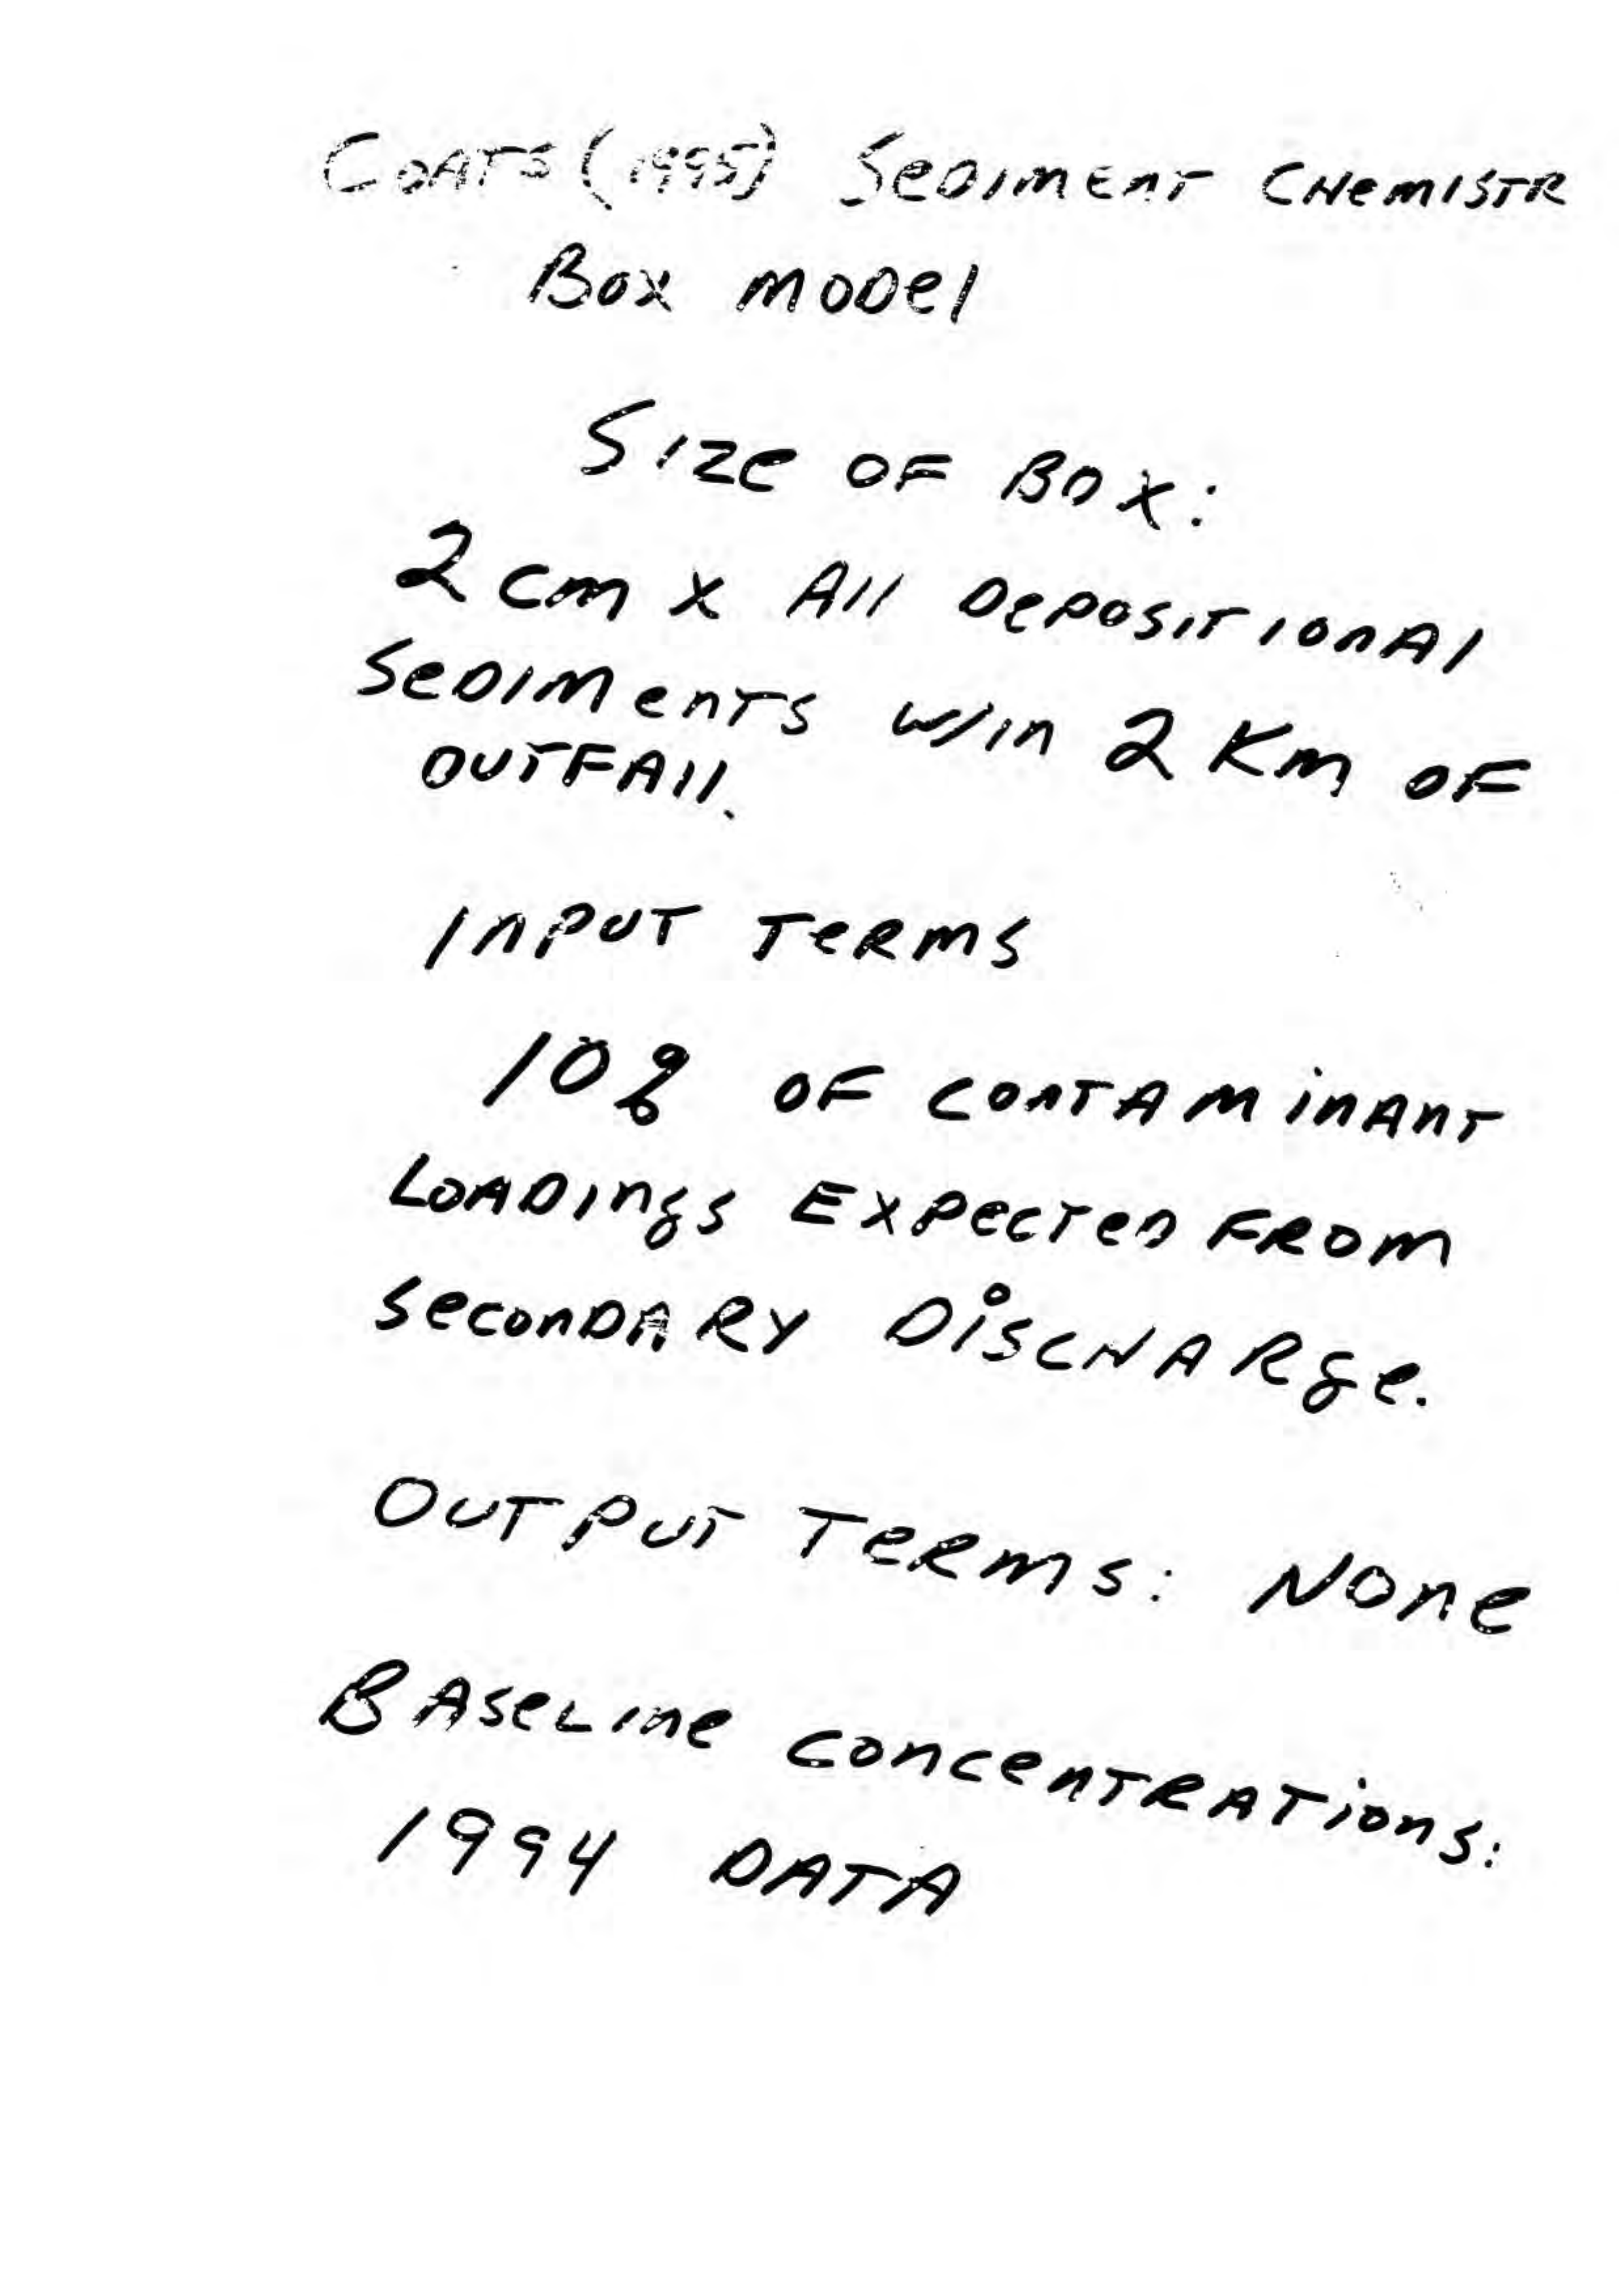 COATS (1995) SEDIMENT CHEMISTR
BOX MODEL
SIZE OF BOX:
2 cm x All DEPOSITIONAL
SEDIMENTS w/in 2 Km OF
OUTFALL.
INPUT TERMS
10% OF CONTAMINANT
LOADINGS EXPECTED FROM
SECONDARY DISCHARGE.
OUTPUT TERMS: NONE
BASELINE CONCENTRATIONS:
1994 DATA